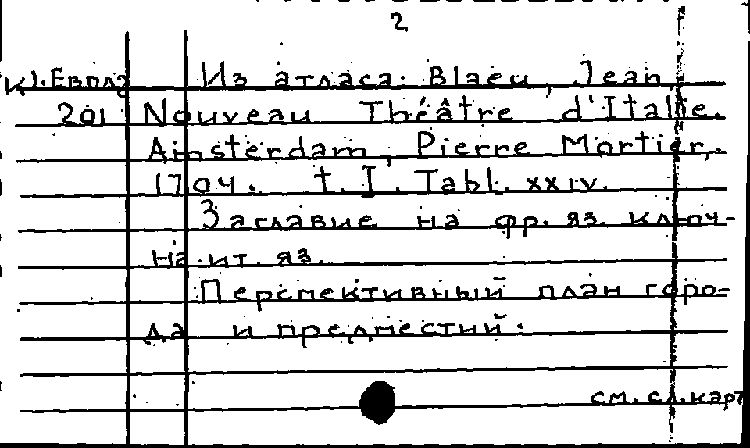 2
К). Евпл3 Из атласа: Blaeu, Jean,
201 Nouveau Théâtre d'Italie.
Amsterdam, Pierre Mortier,
1704. t. I. Tabl. XXIV.
Заглавие на фр. яз. ключ-
на ит. яз.
Перспективный план горо-
да и предместий.
см. сл. карт